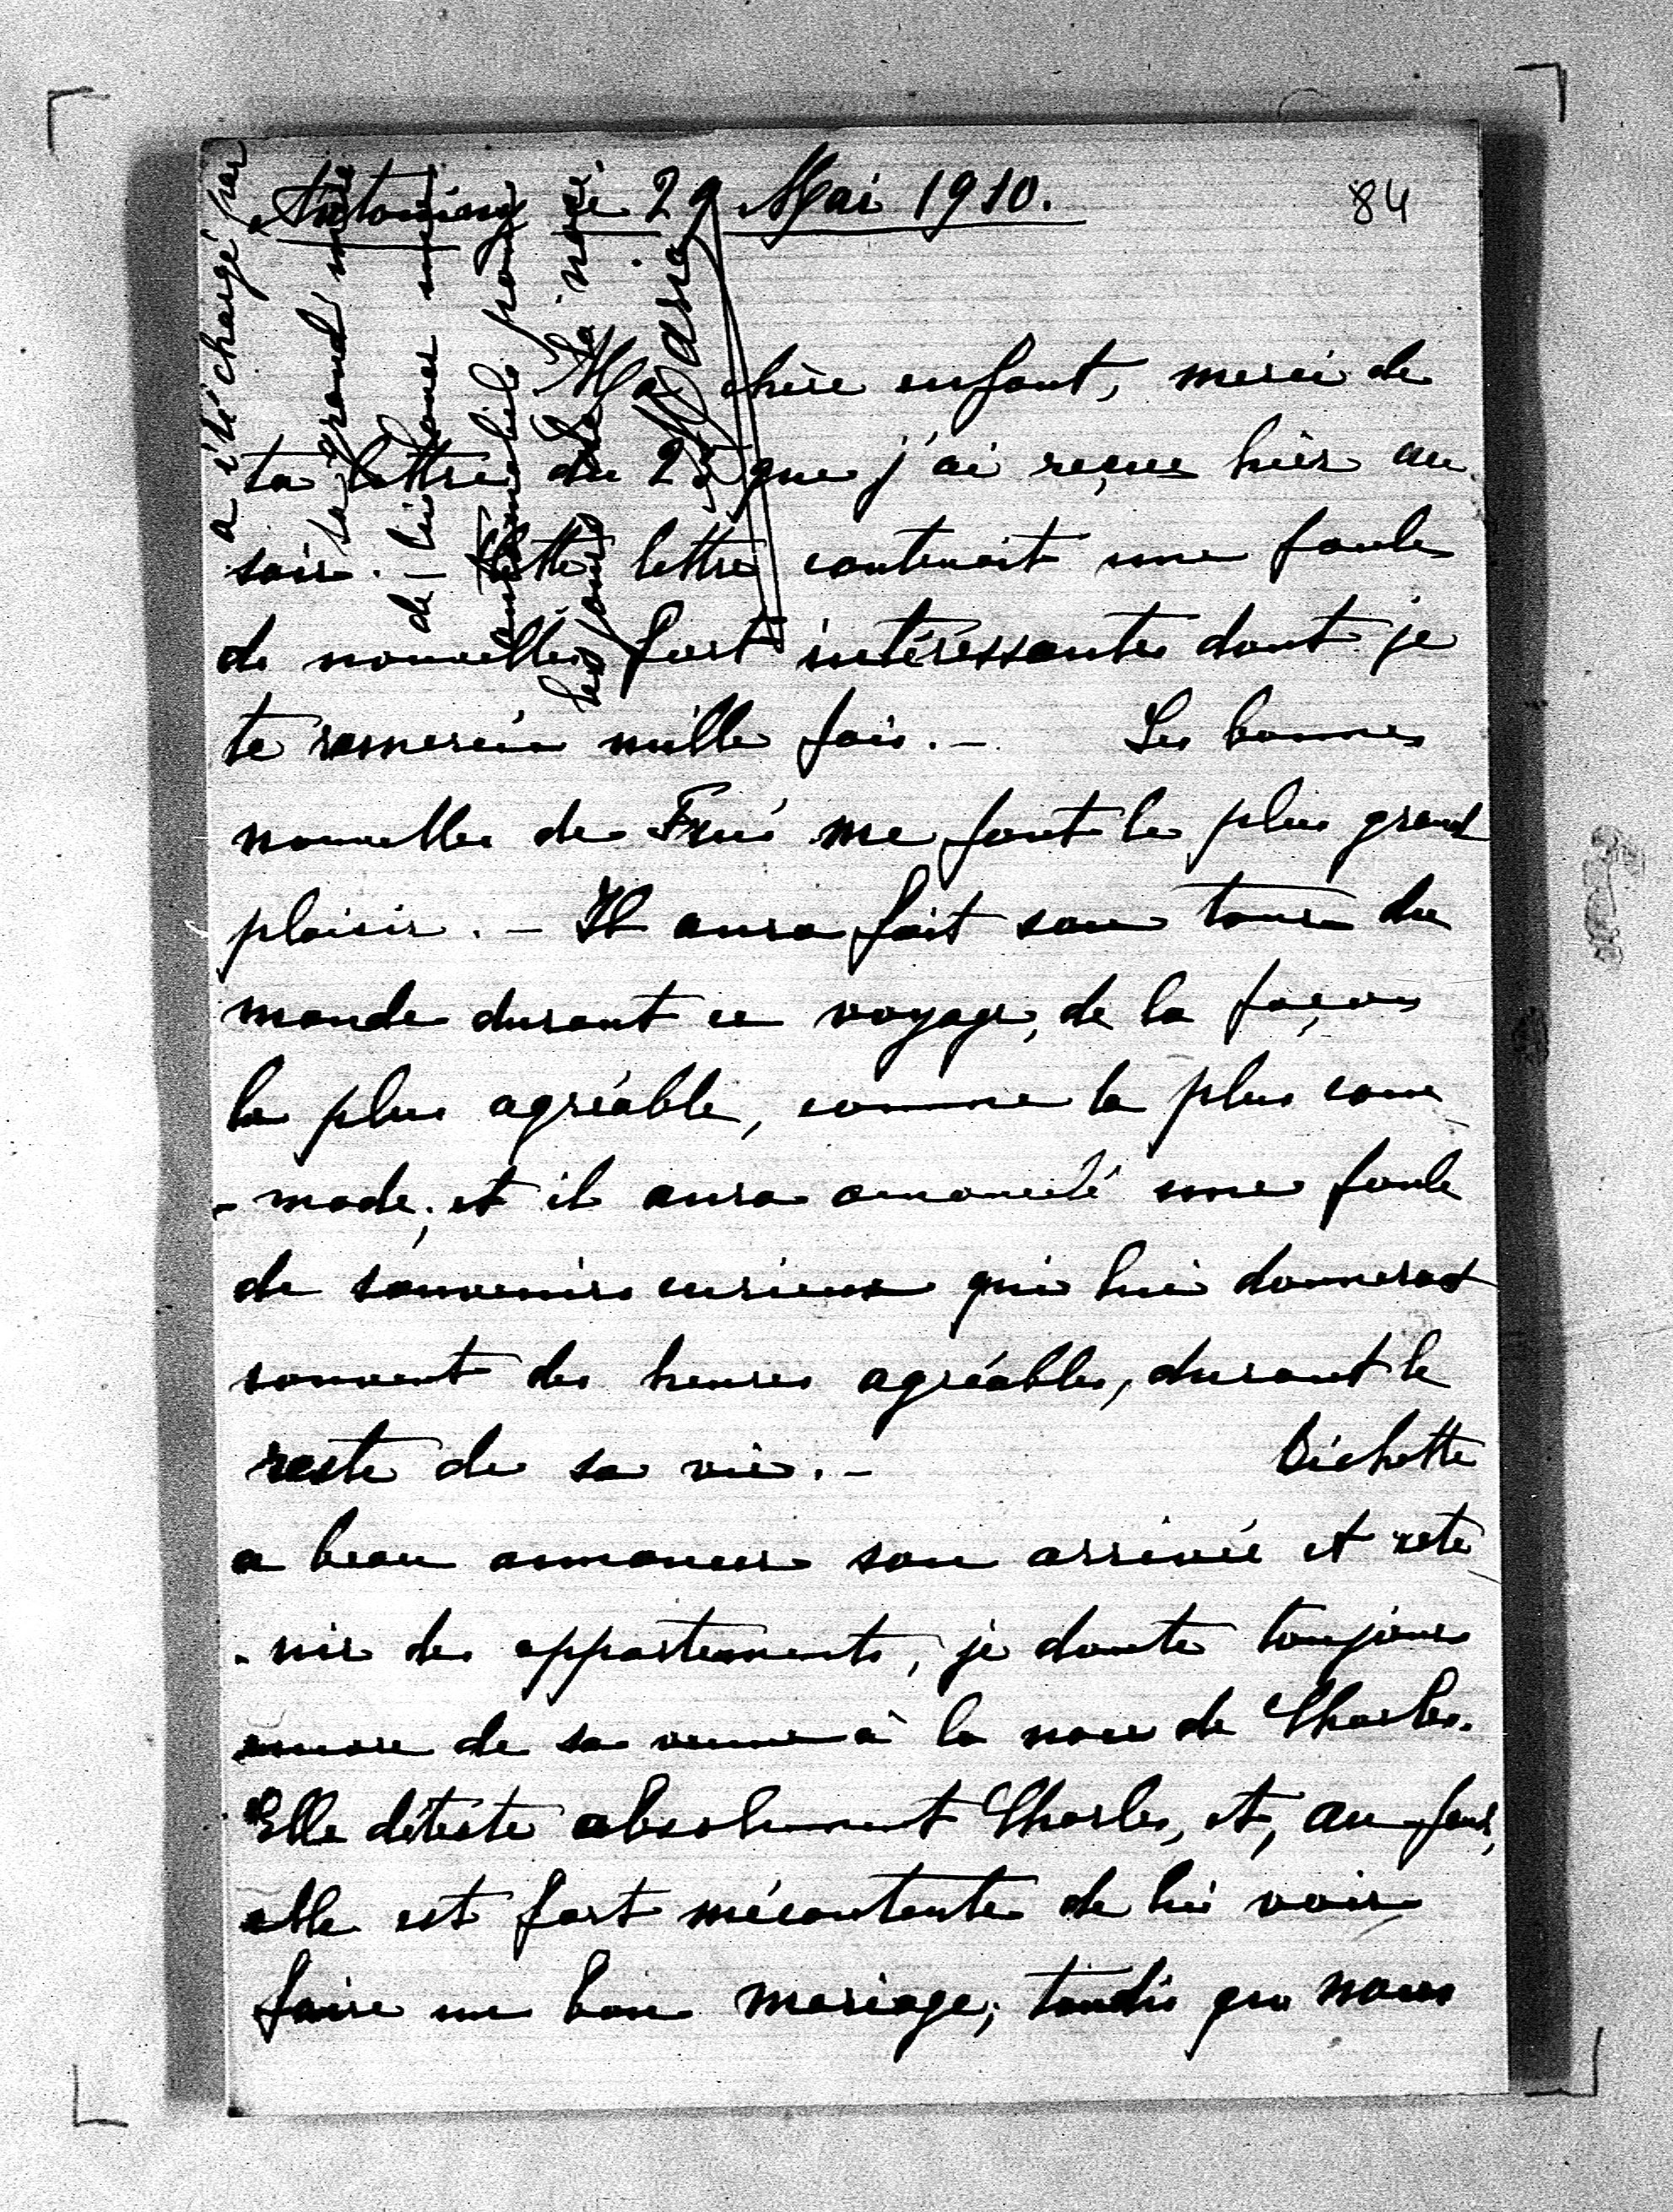 Antoniny ce 29 Mai 1910.
84
Ma chère enfant, merci de
ta lettre du 25 que j'ai reçue hier au
soir. – Cette lettre contenait une foule
de nouvelles fort intéressantes dont je
te remercie mille fois. – Les bonnes
nouvelles de me font le plus grand
plaisir. – Il aura fait son tour du
monde durant ce voyage, de la façon
la plus agréable, comme la plus com
- mode, et il aura amoncelé une foule
de souvenirs curieux qui lui donneront
souvent des heures agréables, durant le
reste de sa vie. – Bichette
a beau annoncer son arrivée et rete
- nir des appartements, je doute toujours
encore de sa venue à la noce de Charles.
Elle déteste absolument Charles, et, au fond,
elle est fort mécontente de lui voir
faire un bon mariage; tandis que nous
a été chargé par
sa grand mère
de lui
pour
les jours de la noce
Maria